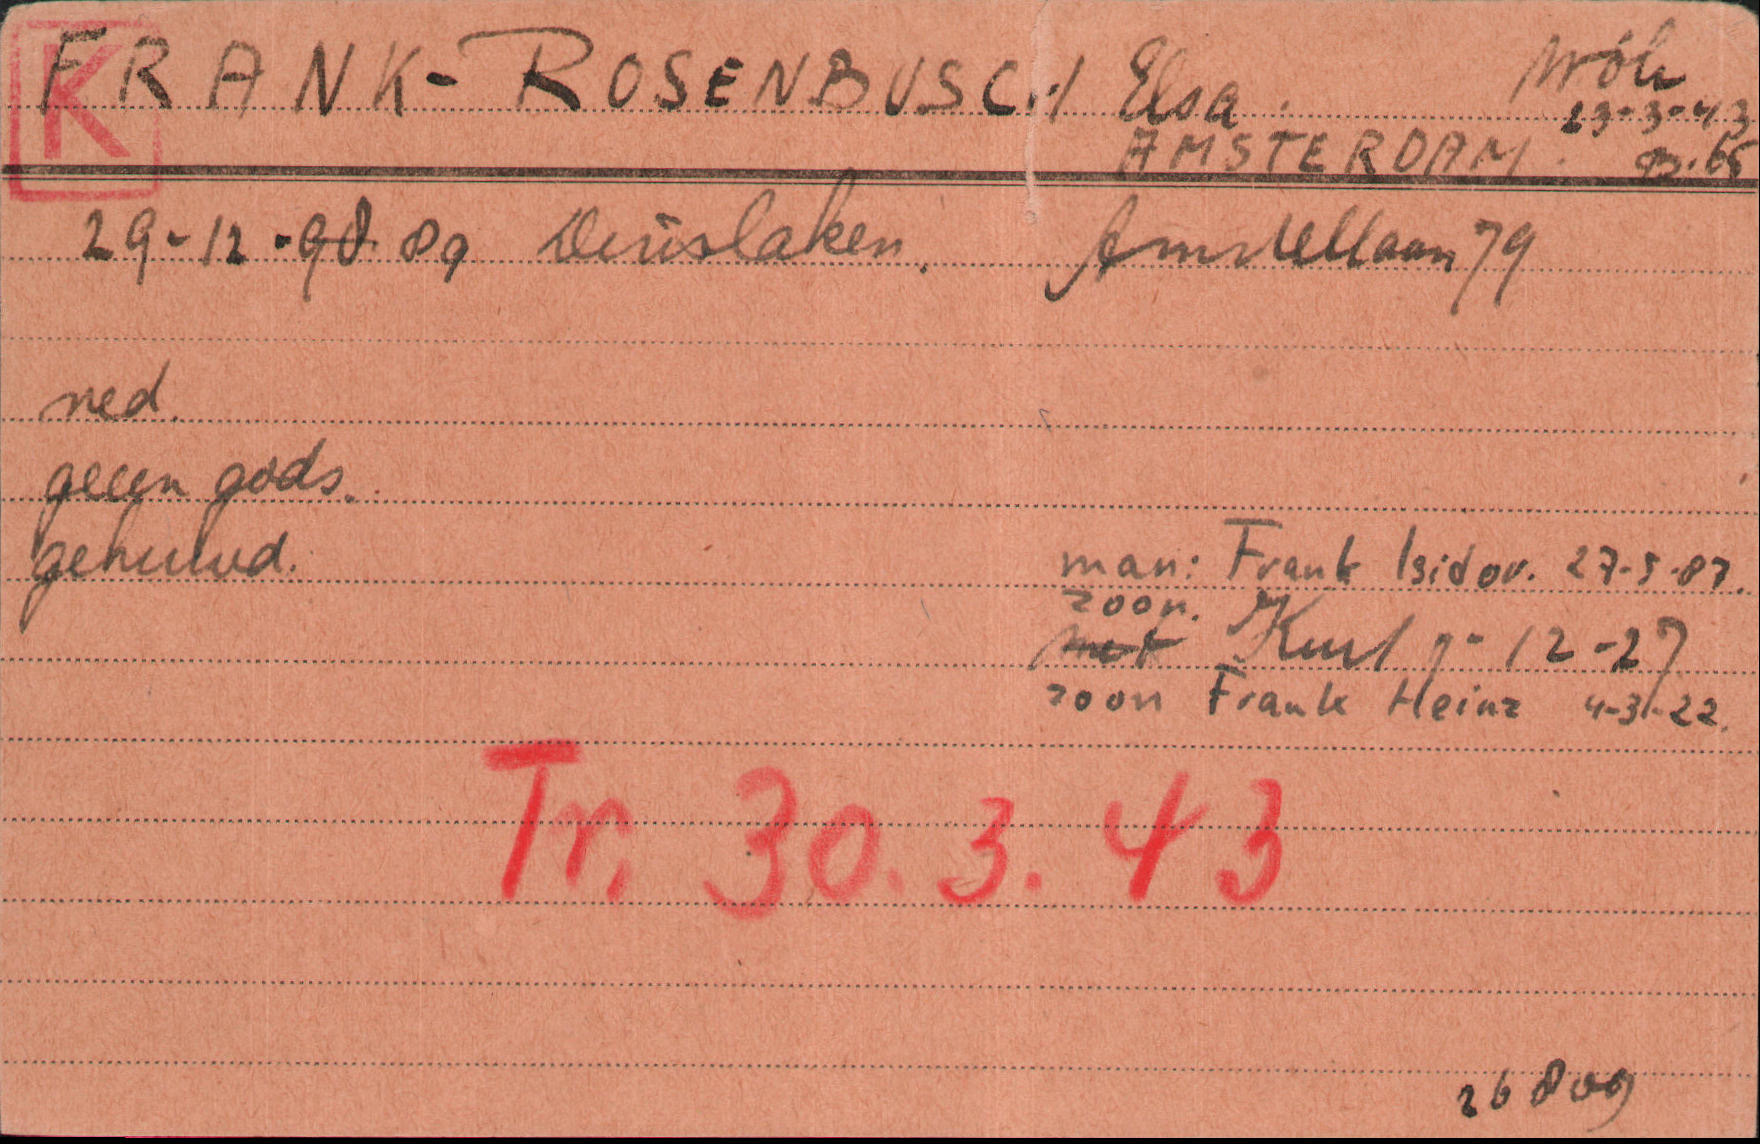 K
FRANK-ROSENBUSCH Elsa.
23-3-43
AMSTERDAM. B.65
29-12-98 89 Dinslaken. Amstellaan 79
ned.
geen gods.
gehuwd.
man: Frank Isidor. 27-5-87.
zoon.
met Kurt 7-12-27
zoon Frank Heinz 4-3-22.
Tr. 30.3.43
26809